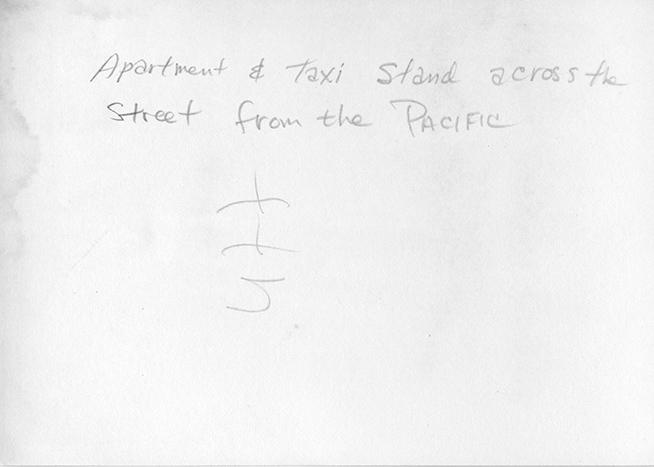 Apartment & Taxi Stand across the
Street from the PACIFIC